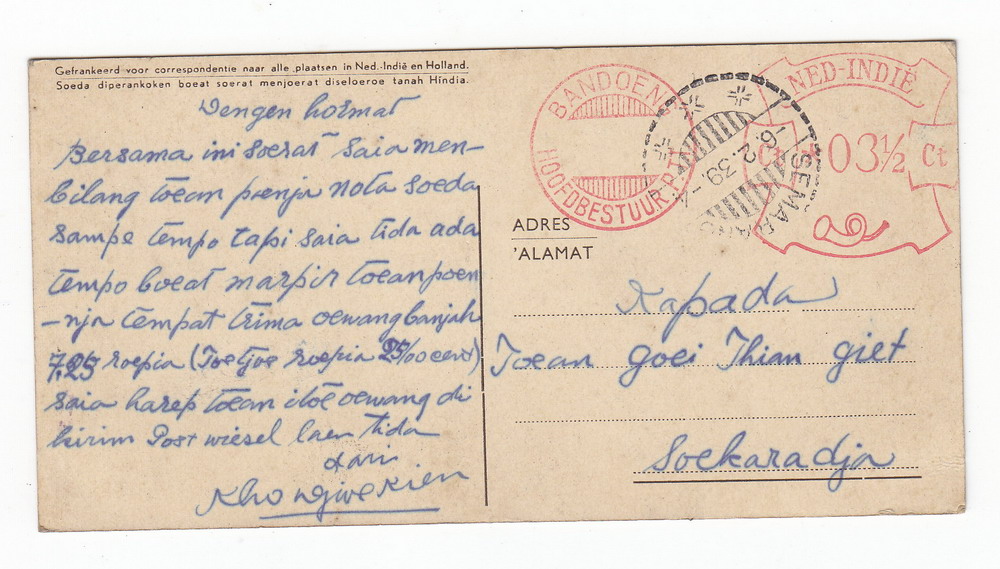 Gefrankeerd voor correspondentie naar alle plaatsen in Ned.-Indië en Holland.
Soeda diperankoken boeat soerat menjoerat diseloeroe tanah Hindia.
Dengen hormat
Bersama ini soerat saia men-
bilang toean poenja nota soeda
sampe tempo tapi saia tida ada
tempo boeat marpir toean poen
-nja tempat trima oewang banjak
7.25 roepia (Toetjoe roepia 25/00 cent)
saia harep toean itoe oewang di
kirim Post wiesel laen tida
dari
Kho Ngiwe Kien
BANDOENG
HOOFDBESTUUR PTT
SEMARANG
16.2.39
NED-INDIË
Ct 03½ Ct
ADRES
'ALAMAT
Kapada
Toean Goei Thian Giet
Soekaradja